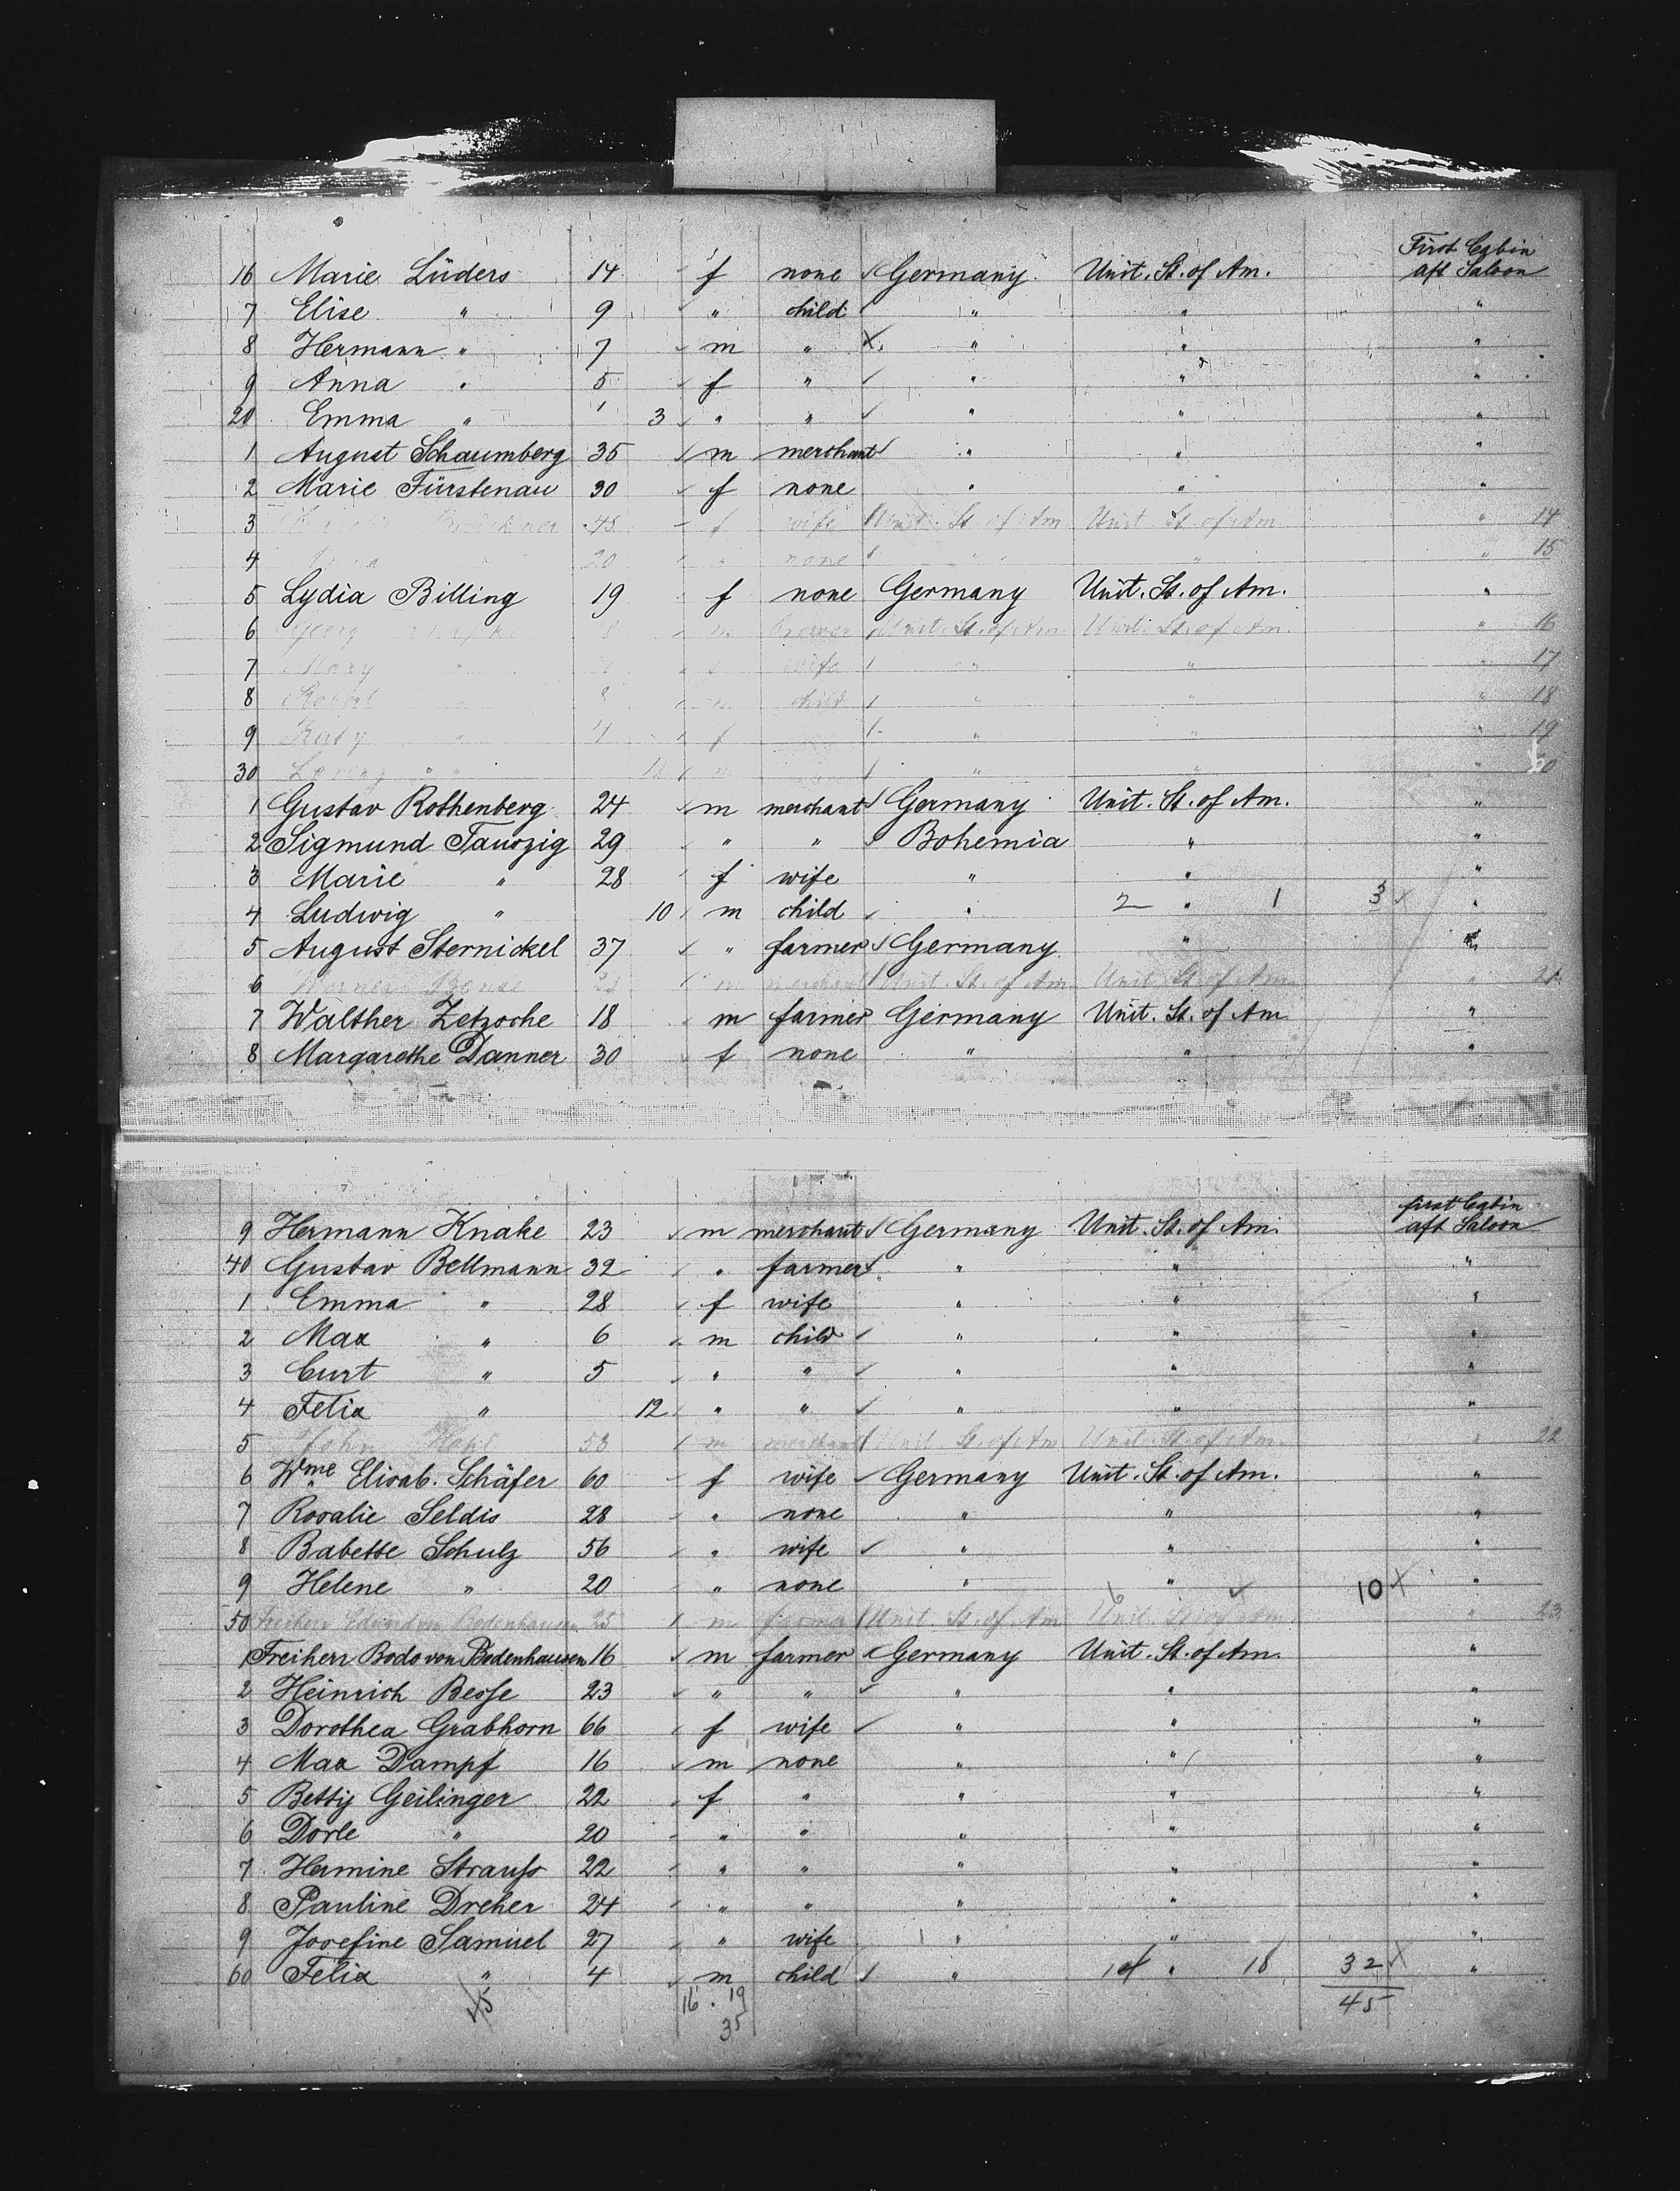 First Cabin
16 Marie Lüders 14 f none Germany Unit. St. of Am. aft Saloon
7 Elise " 9 " child " " "
8 Hermann " 7 m " " " "
9 Anna " 5 f " " " "
20 Emma " 3 " " " " "
1 August Schaumberg 35 m merchant " " "
2 Marie Fürstenau 30 f none " " "
3 Brückner 45 f wife Unit. St. of Am Unit St. of Am " 14
4 20 " none " " " 15
5 Lydia Billing 19 f none Germany Unit. St. of Am. "
6 Georg m brewer Unit. St. of Am. Unit. St. of Am. " 16
7 Mary " wife " " " 17
8 Robert " m child " " " 18
9 Katy " 4 f " " " 19
30 " 12 m " " " 20
1 Gustav Rothenberg 24 m merchant Germany Unit. St. of Am. "
2 Sigmund Taussig 29 " " Bohemia " "
3 Marie " 28 f wife " " "
4 Ludwig " 10 m child " 2 " 1 3 "
5 August Sternickel 37 " farmer Germany " "
6 Werner m merchant Unit. St. of Am. Unit. St. of Am. " 21
7 Walther Zetzsche 18 m farmer Germany Unit. St. of Am "
8 Margarethe Danner 30 f none " " "
first Cabin
9 Hermann Knake 23 m merchant Germany Unit. St. of Am. aft Saloon
40 Gustav Bellmann 32 " farmer " " "
1 Emma " 28 f wife " " "
2 Max " 6 m child " " "
3 Curt " 5 " " " " "
4 Felix " 12 " " " " "
5 John 53 m merchant Unit St. of Am Unit. St. of Am. " 22
6 Wme Elisab. Schäfer 60 f wife Germany Unit. St. of Am. "
7 Rosalie Seldis 28 " none " " "
8 Babette Schulz 56 " wife " " "
9 Helene " 20 " none " 6 " 10 "
50 Freiherr Eduard von Bodenhausen 25 m farmer Unit. St. of Am Unit. St. of Am " 23
1 Freiherr Bodo von Bodenhausen 16 m farmer Germany Unit. St. of Am. "
2 Heinrich Besse 23 " " " " "
3 Dorothea Grabhorn 66 f wife " " "
4 Max Dampf 16 m none " " "
5 Betty Geilinger 22 f " " " "
6 Dorle " 20 " " " " "
7 Hermine Strauß 22 " " " " "
8 Pauline Dreher 24 " " " " "
9 Josefine Samuel 27 " wife " " "
60 Felix " 4 m child " 14 " 18 32 "
45 16 . 19 45
35